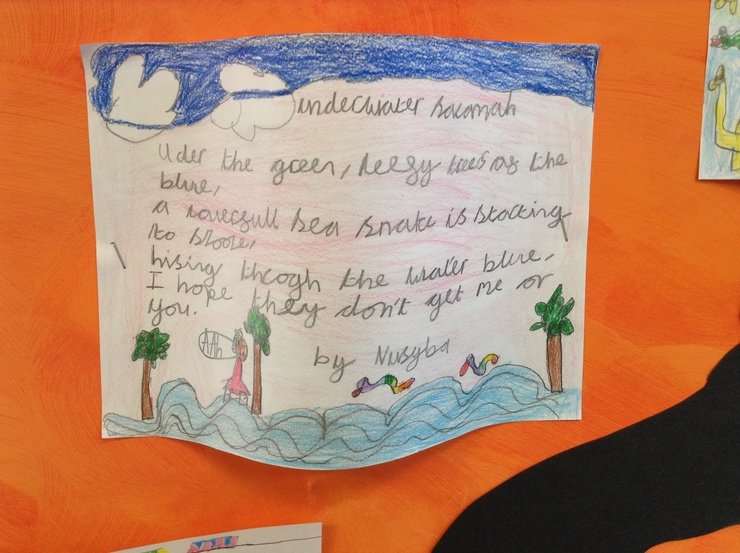 underwater savannah
Uder the green, leegy trees of the
blue,
a powerfull sea snake is starting
to stove,
hising throgh the water blue.
I hope they don't get me or
you.
AAh
by Nusyba